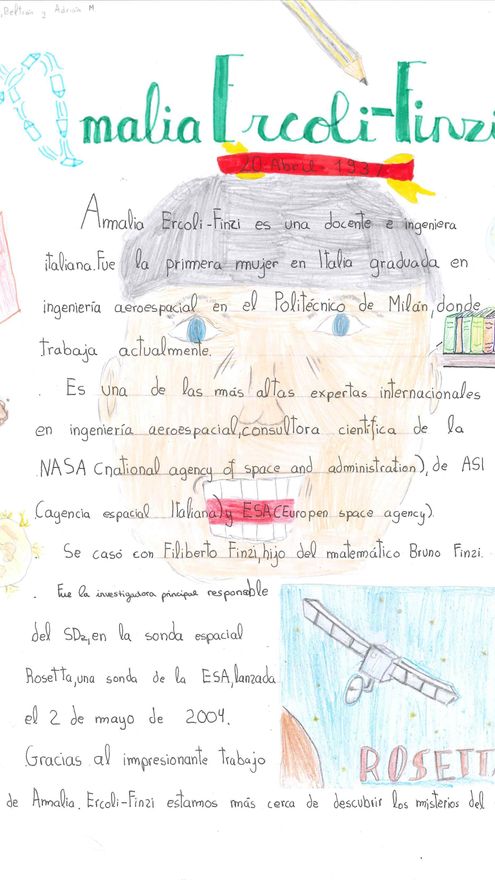 ,Beltrán y Adrián M
Amalia Ercoli-Finzi
20 Abril 1937
Amalia Ercoli-Finzi es una docente e ingeniera
italiana.Fue la primera mujer en Italia graduada en
ingeniería aeroespacial en el Politécnico de Milán,donde
trabaja actualmente.
. Es una de las más altas expertas internacionales
en ingeniería aeroespacial,consultora científica de la
NASA (national agency of space and administration), de ASI
(agencia espacial Italiana) y ESA(Europen space agency).
. Se casó con Filiberto Finzi,hijo del matemático Bruno Finzi.
. Fue la investigadora principal responsable
del SD2,en la sonda espacial
Rosetta,una sonda de la ESA,lanzada
el 2 de mayo de 2004.
Gracias al impresionante trabajo
ROSETTA
de Amalia. Ercoli-Finzi estamos más cerca de descubrir los misterios del